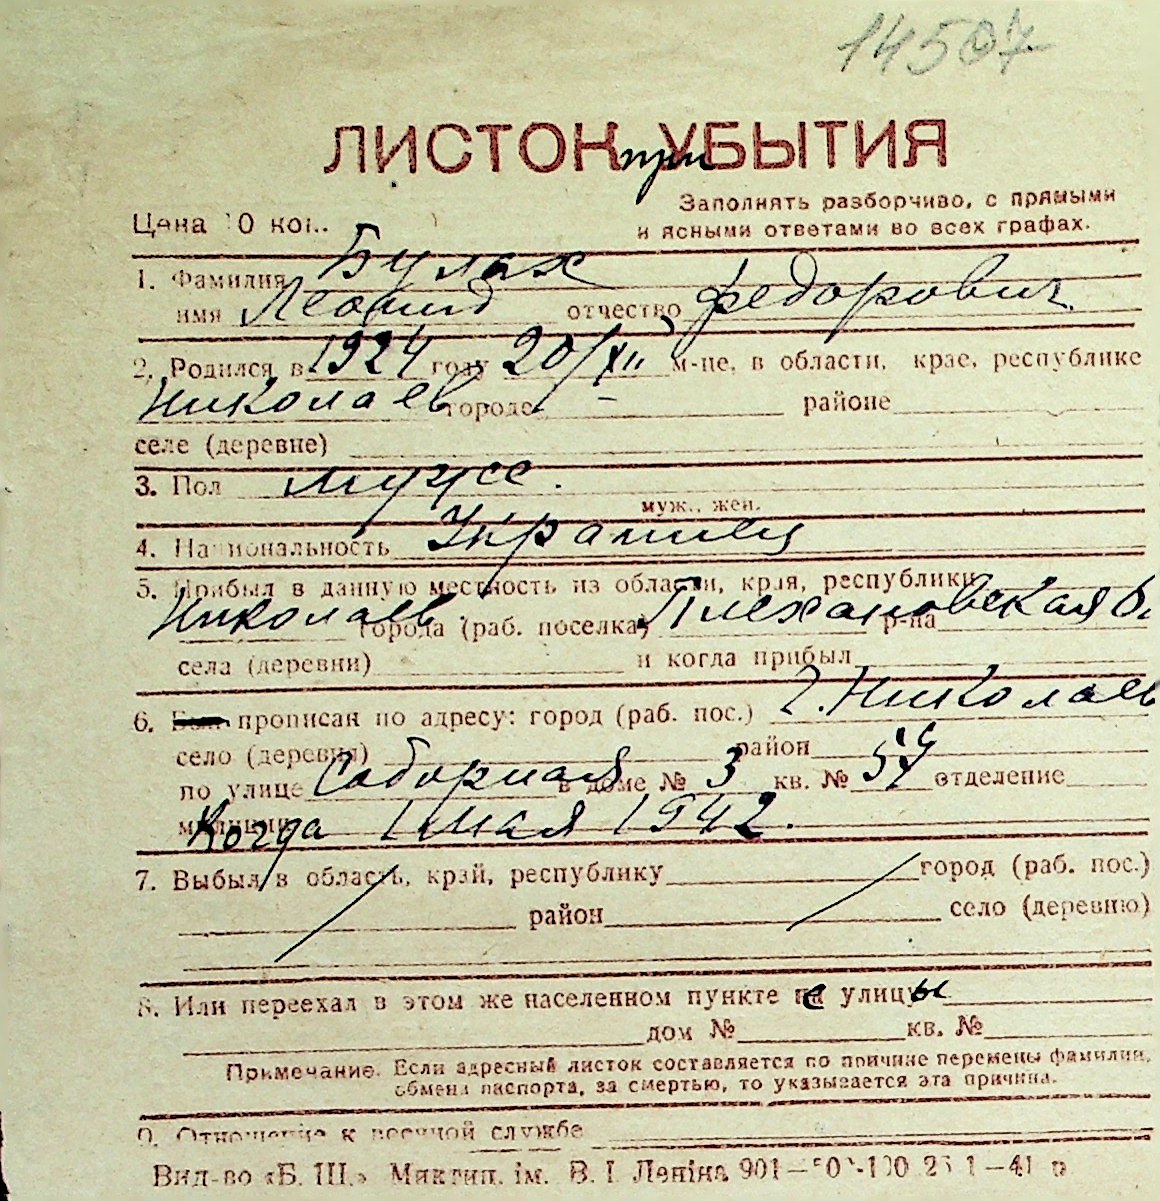 14507
ЛИСТОК при УБЫТИЯ
Заполнять разборчиво, с прямыми
Цена 10 коп. и ясными ответами во всех графах.
1. Фамилия Булах
имя Леонид отчество Федорович
2. Родился в 1924 году 20/XII м-це, в области, крае, республике
Николаев городе — районе
селе (деревне)
3. Пол мужс.
муж., жен.
4. Национальность Украинец
5. Прибыл в данную местность из области, края, республики
Николаев города (раб. поселка) Плехановская р-на
села (деревни) и когда прибыл
6. прописан по адресу: город (раб. пос.) г. Николаев
село (деревня) район
по улице Соборная в доме № 3 кв. № отделение
милиции Когда 1 мая 1942.
7. Выбыл в область, край, республику город (раб. пос.)
район село (деревню)
8. Или переехал в этом же населенном пункте с улицы
дом № кв. №
Примечание. Если адресный листок составляется по причине перемены фамилии,
обмена паспорта, за смертью, то указывается эта причина.
9. Отношение к военной службе
Вид-во «Б. Ш.» Микгип. ім. В. І. Леніна 901